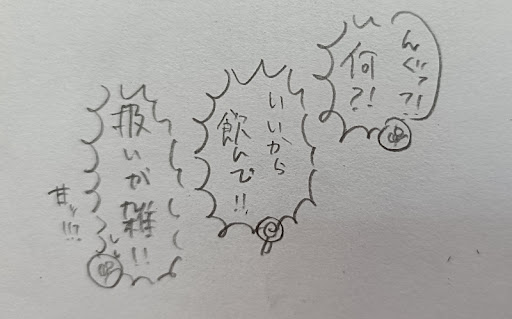 んぐっ?!
何?!
いいから
飲んで!!
扱いが雑!!
甘ッ!!?